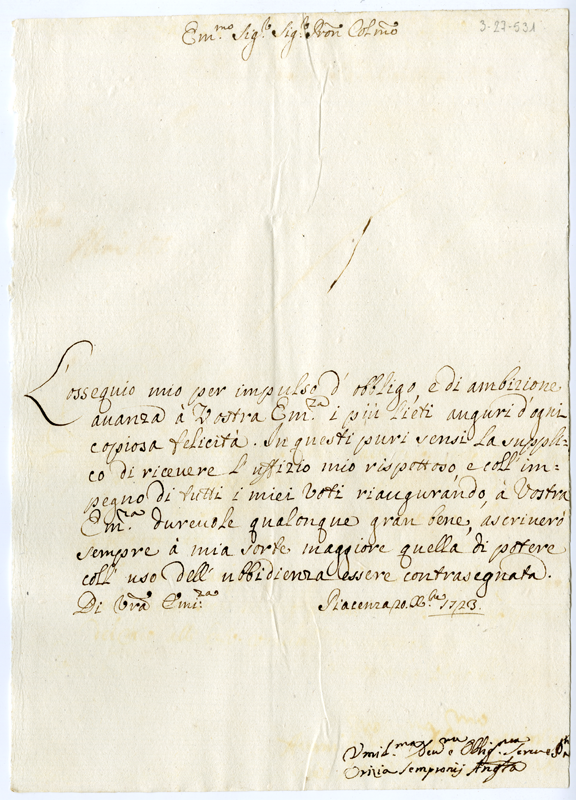 Em.mo Sig.re Sig.re Pron Colmo
3-27-531
L'ossequio mio per impulso d' obbligo, e di ambizione
auanza à Vostra Em.za i più lieti auguri d'ogni
copiosa felicità. In questi puri sensi La suppli-
co di riceuere l'uffizio mio rispottoso, e coll' im-
pegno di tutti i miei Voti riaugurando, à Vostra
Em.za dureuole qualonque gran bene, ascriuerò
sempre à mia sorte maggiore quella di potere
coll' uso dell' ubbidienza essere contrasegnata.
Di Vrã Emi.za Piacenza 20. Xbre 1723.
Vmil.ma Deu.ma e Obblig.ma Serua
Sempronij Angla